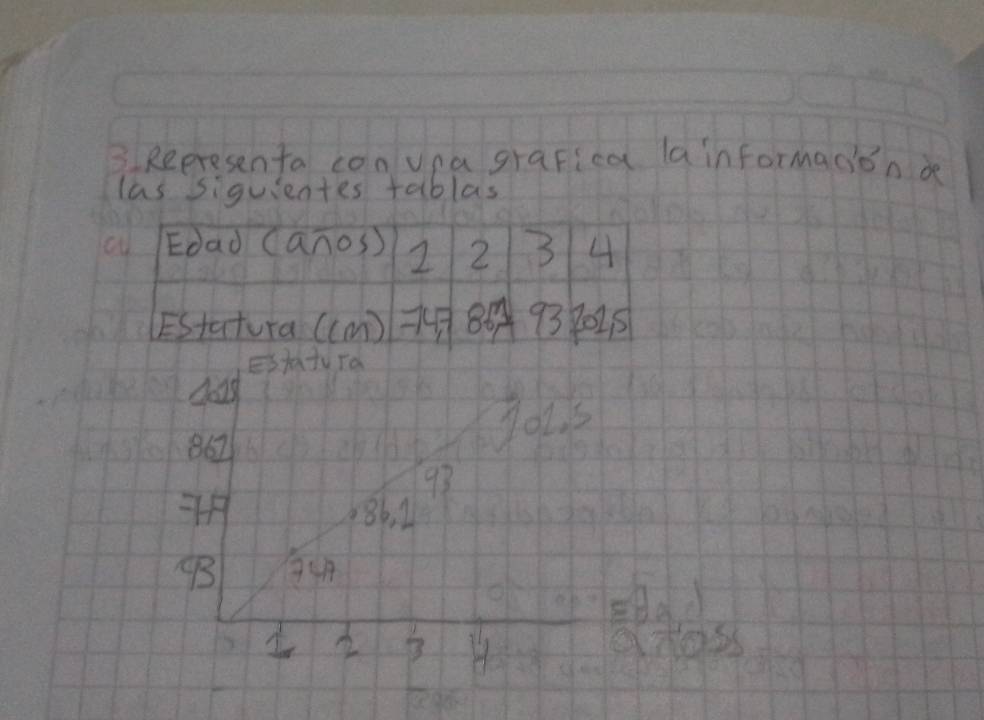 3. Representa con una grafica la información de
las siguientes tablas
a Edad (años) 1 2 3 4
Estatura (cm) 74,7 86,1 93 101,5
Estatura
101,5
861
747
93
101.5
93
86.1
747
1 2 3 4
Edad
años